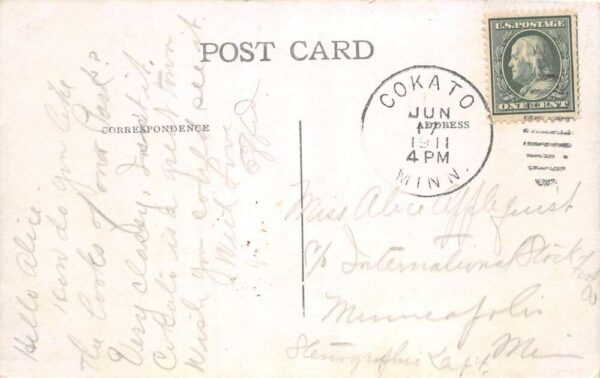 POST CARD
CORRESPONDENCE
ADDRESS
U.S. POSTAGE
ONE CENT
COKATO
JUN
17
1911
4 PM
MINN.
Hello Alice.
How do you like
the looks of our Park?
Very classy, isn't it.
Cokato is a great town
Wish you could see it.
With love
Miss Alice Applequist
c/o International Stock Food
Co
Minneapolis
Minn
Stenographic Dep't.